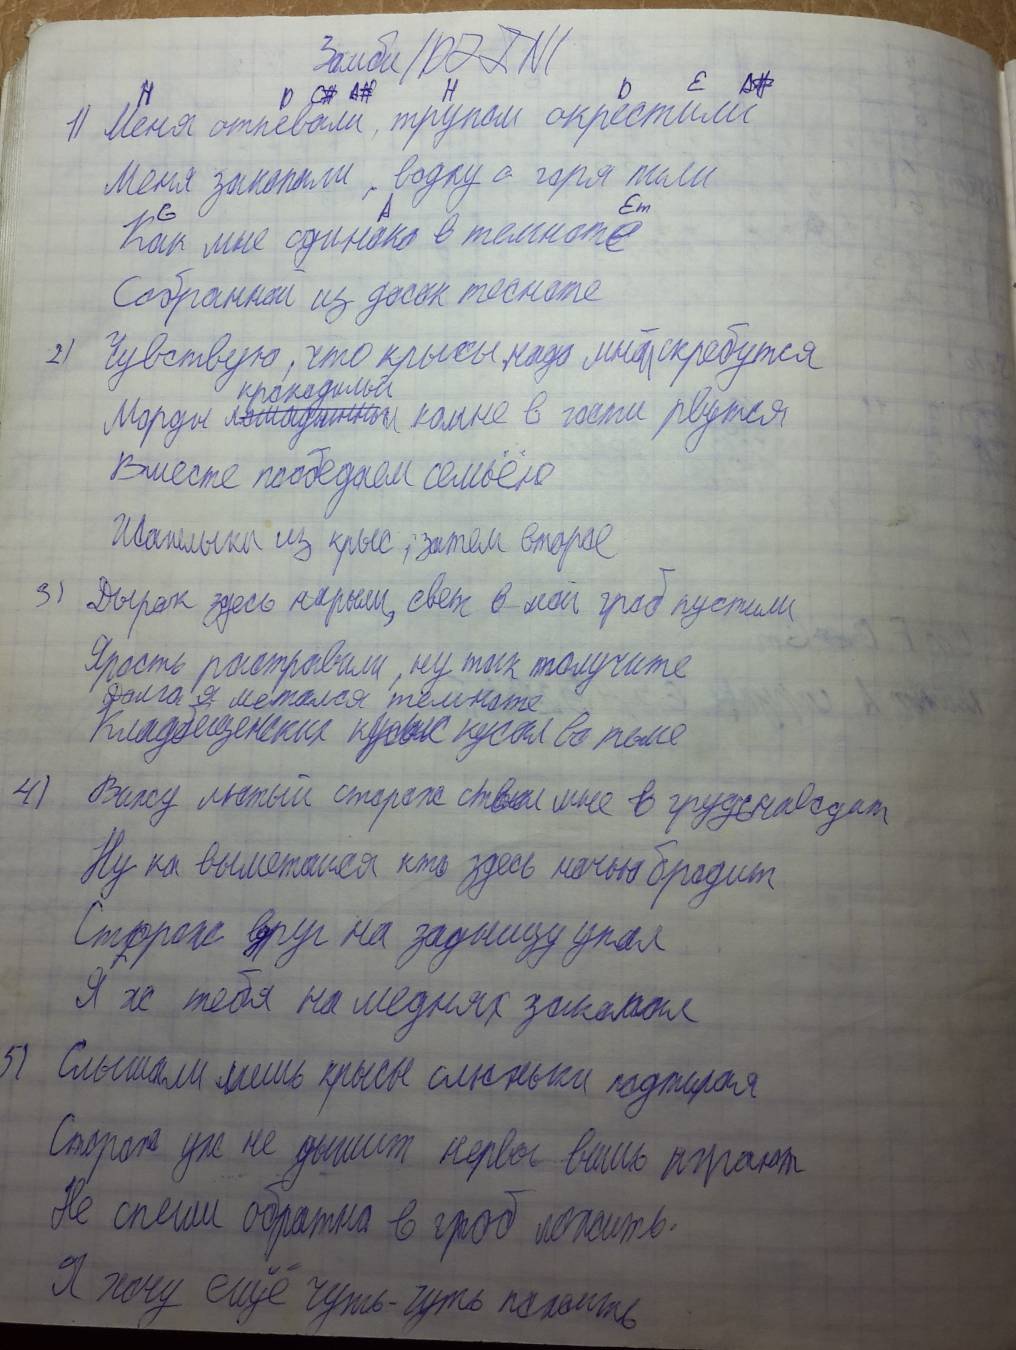 Зомби/DZIN(
H D C# A# H D E A#
1) Меня отпевали, трупом окрестили
Меня закопали, водку с горя пили
G A Em
Как мне одиноко в темноте
Собранной из досок тесноте
2) Чувствую, что крысы, надо мной скребутся
крокодильи
Морды комне в гости рвутся
Вместе пообедаем семьёю
Шашлыки из крыс, затем второе
3) Дырок здесь нарыли, свет в мой гроб пустили
Ярость растравили, ну так получите
Долга я метался темноте
Кладбещенских кусал во тьме
4) Вижу лютый сторож ствол мне в грудь наводит
Ну ка выметайся кто здесь ночью бродит
Сторож вдруг на задницу упал
Я ж тебя на меднях закопал
5) Слышали лишь крысы слюньки подтирая
Сторож уж не дышит нервы вишь
Не спеши обратна в гроб ложить.
Я хочу ещё чуть-чуть пожить